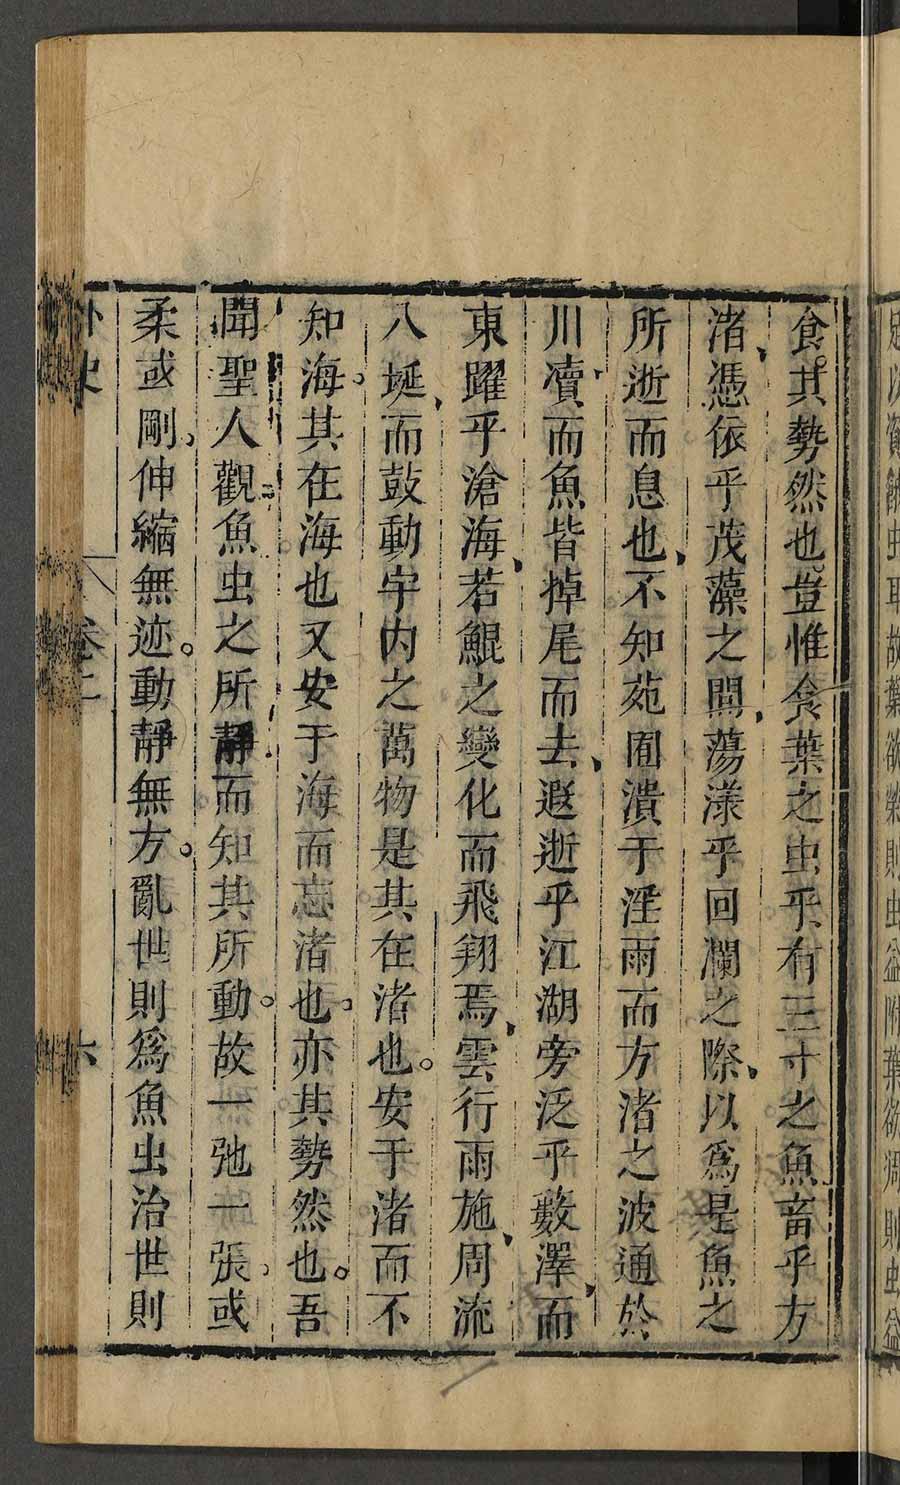 食其勢然也豈惟食葉之虫乎有三寸之魚畜乎方
渚憑依乎茂藻之間蕩漾乎回瀾之際以爲是魚之
所逝而息也不知苑囿潰于淫雨而方渚之波通於
川瀆而魚皆掉尾而去遐逝乎江湖旁泛乎藪澤而
東躍乎滄海若鯤之變化而飛翔焉雲行雨施周流
八埏而鼓動宇内之萬物是其在渚也安于渚而不
知海其在海也又安于海而忘渚也亦其勢然也吾
聞聖人觀魚虫之所靜而知其所動故一弛一張或
柔或剛伸縮無迹動靜無方亂世則爲魚虫治世則
卷上
六